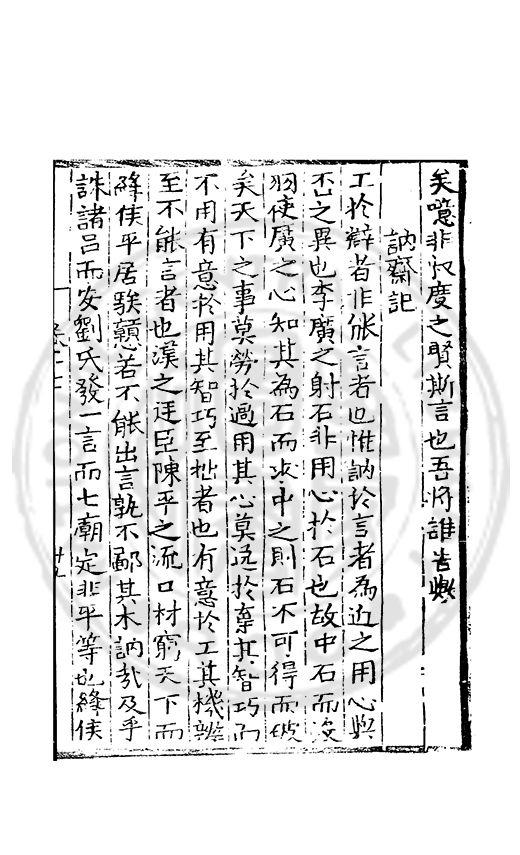 矣噫非叔度之賢斯言也吾將誰告歟
訥齋記
工於辯者非能言者也惟訥於言者為近之用心與
不之異也李廣之射石非用心於石也故中石而沒
羽使廣之心知其為石而求中之則石不可得而破
矣天下之事莫勞於過用其心莫逸於棄其智巧而
不用有意於用其智巧至拙者也有意於工其機辨
至不能言者也漢之廷臣陳平之流口材窮天下而
絳侯平居騃戇若不能出言孰不鄙其木訥哉及乎
誅諸呂而安劉氏發一言而七廟定非平等也絳侯